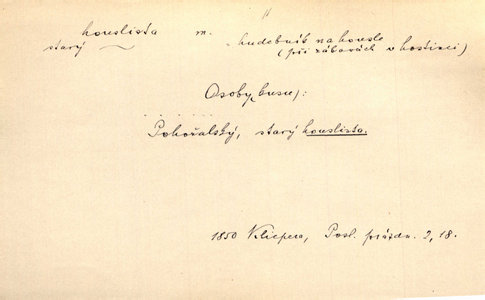 houslista m. hudebník na housle
starý (při zábavách v hostinci)
Osoby (kusu):
Pohořalský, starý houslista.
1850 Klicpera, Posl. prázdn. 2, 18.